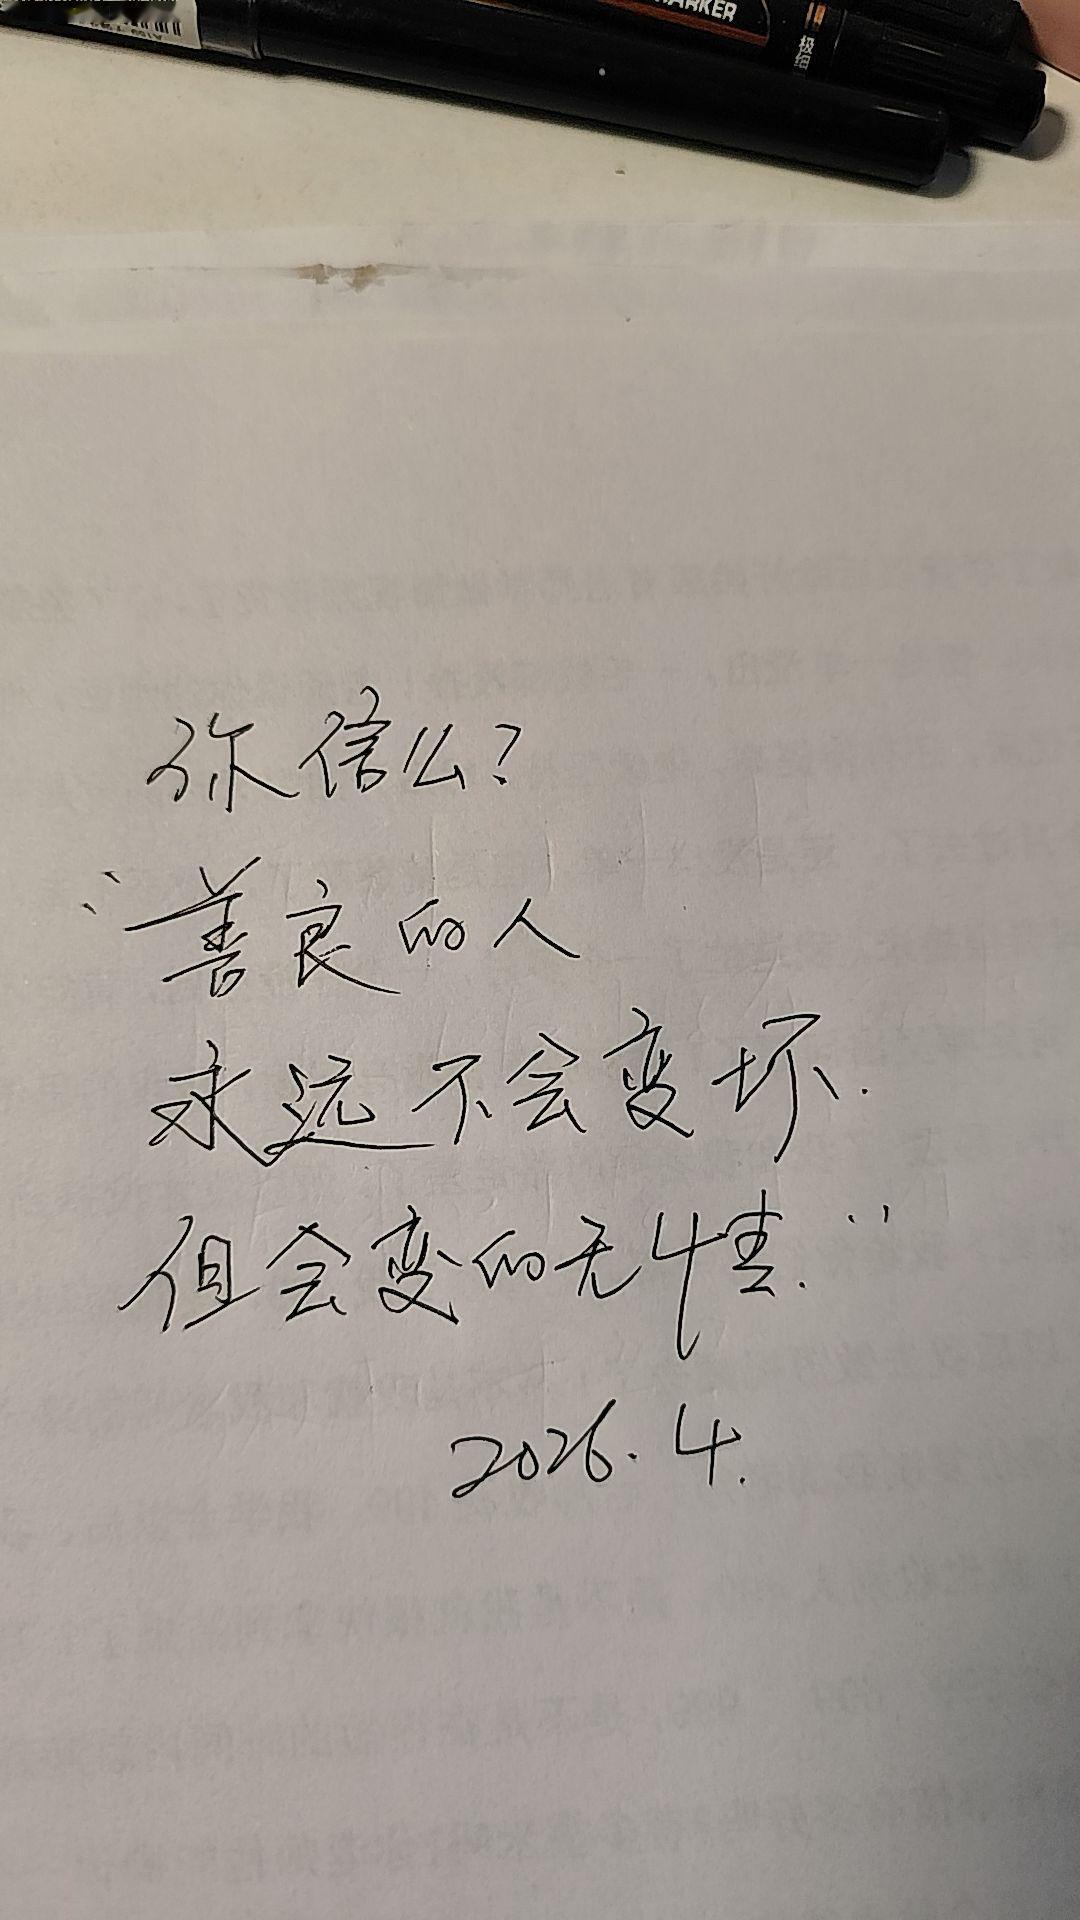 MARKER
极细
你信么?
“善良的人
永远不会变坏.
但会变的无情.”
2026.4.